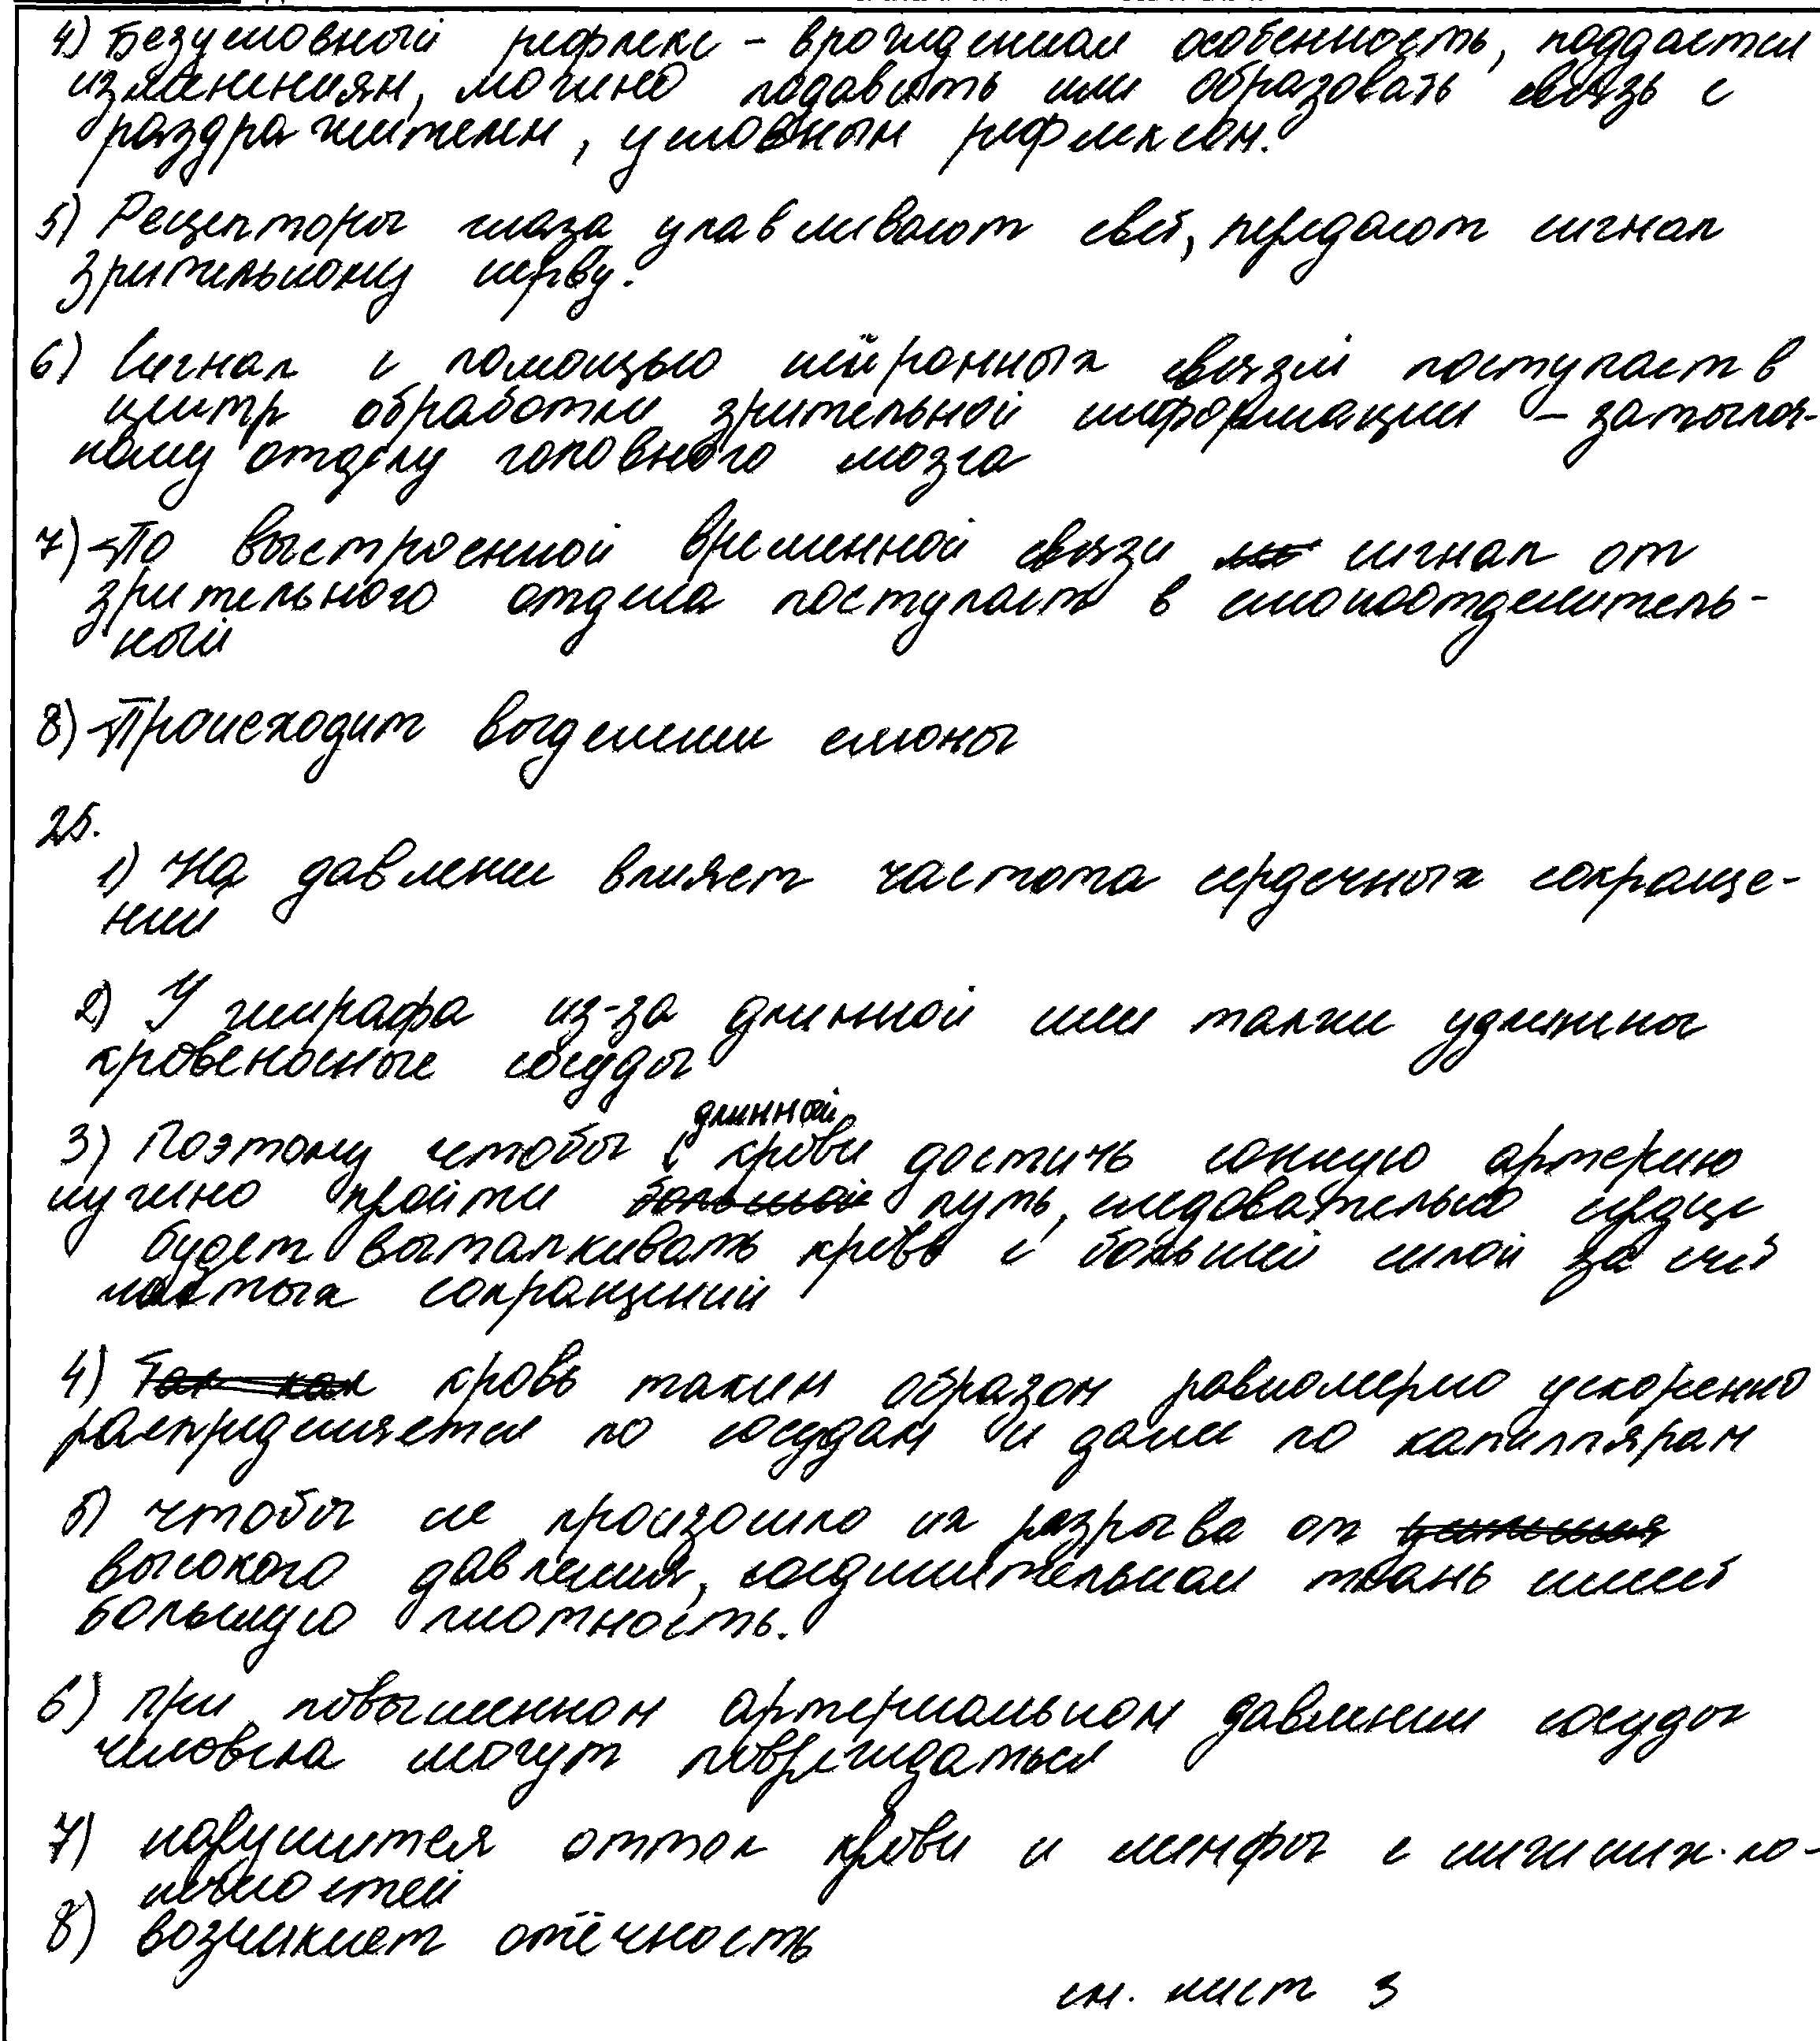 4) Безусловный рефлекс - врожденная особенность, поддается
изменениям, можно подавить или образовать связь с
раздражителем, условным рефлексом.
5) Рецепторы глаза улавливают свет, передают сигнал
зрительному нерву.
6) Сигнал с помощью нейронных связей поступает в
центр обработки зрительной информации - затылоч-
ному отделу головного мозга
7) По выстроенной временной связи сигнал от
зрительного отдела поступает в слюноотделитель-
ный
8) Происходит выделение слюны
25.
1) На давление влияет частота сердечных сокраще-
ний
2) У жирафа из-за длинной шеи также удлинены
кровеносные сосуды
длинной
3) Поэтому чтобы крови достичь сонную артерию
нужно пройти большой путь, следовательно сердце
будет выталкивать кровь с большей силой за счёт
частых сокращений
4) Так как кровь таким образом равномерно ускоренно
распределяется по сосудам и далее по капиллярам
5) чтобы не произошло их разрыва от
высокого давления, соединительная ткань имеет
большую плотность.
6) При повышенном артериальном давлении сосуды
человека могут повреждаться
7) нарушится отток крови и лимфы с нижних ко-
нечностей
8) возникнет отёчность
см. лист 3